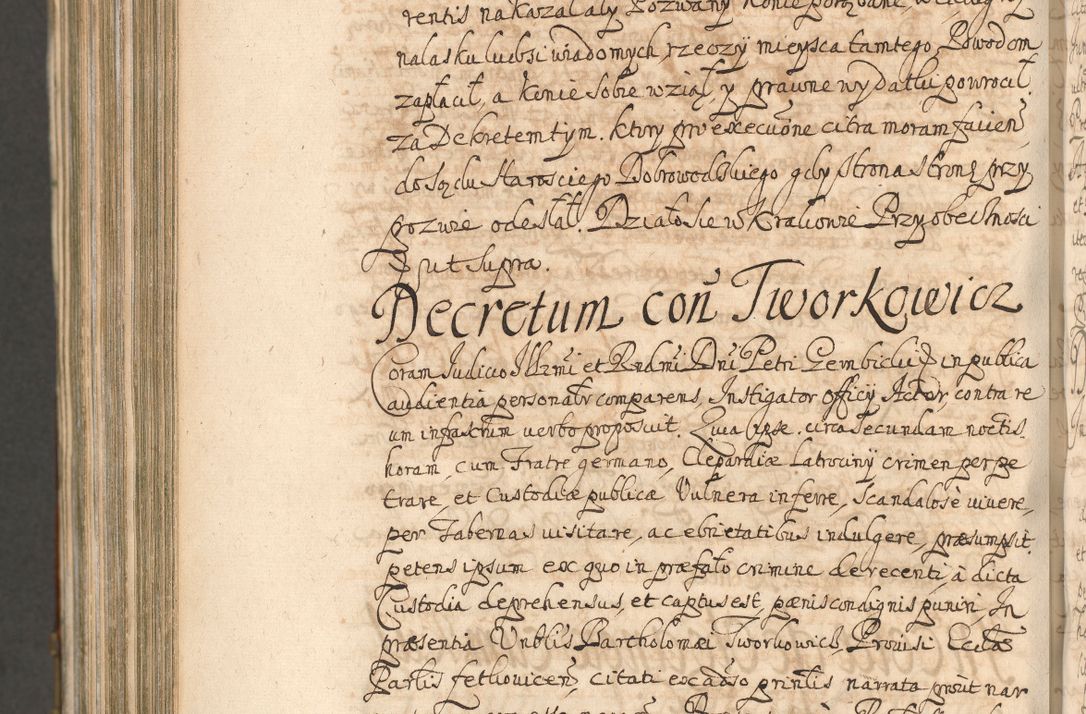 rentis nakazał aby Pozwany konie
nalasku luibsi wiadomych, rzeczy mieysca tamtego Powodom
zapłacił, a konie sobie wziął, y prawne wydatki powrocił.
za Dekretem tym. ktory pro execuõne citra moram facien̄
do sądu Starosciego Dobrowodskiego gdy strona stronę przy
pozwie odesłał. Działo sie w Krakowie Przy obecnosci
ut supra.
Decretum con̄ Tworkowicz
Coram Judicio Illrmi et Rndmi Dni Petri Gembicki in publica
audientia personalr comparens, Instigator officy Actor, contra re
um infrascrum verbo proposuit. Quia ipse circa secundam noctis
horam, cum Fratre germano, Clepardiæ Latrociny crimen perpe
trare, et Custodiæ publicæ Vulnera inferre, scandalosè vivere,
per Tabernas visitare, ac ebrietatibus indulgere, præsumpsit.
petens ipsum ex quo in præfato crimine de recenti, à dicta
Custodia deprehensus, et captus est, pænis condignis puniri, In
præsentia Vnblis Bartholomæi Tworkowicz, Provisi Ecclæ
Parlis fetkovicen̄, citati ex adso prinlis narrata prout nar